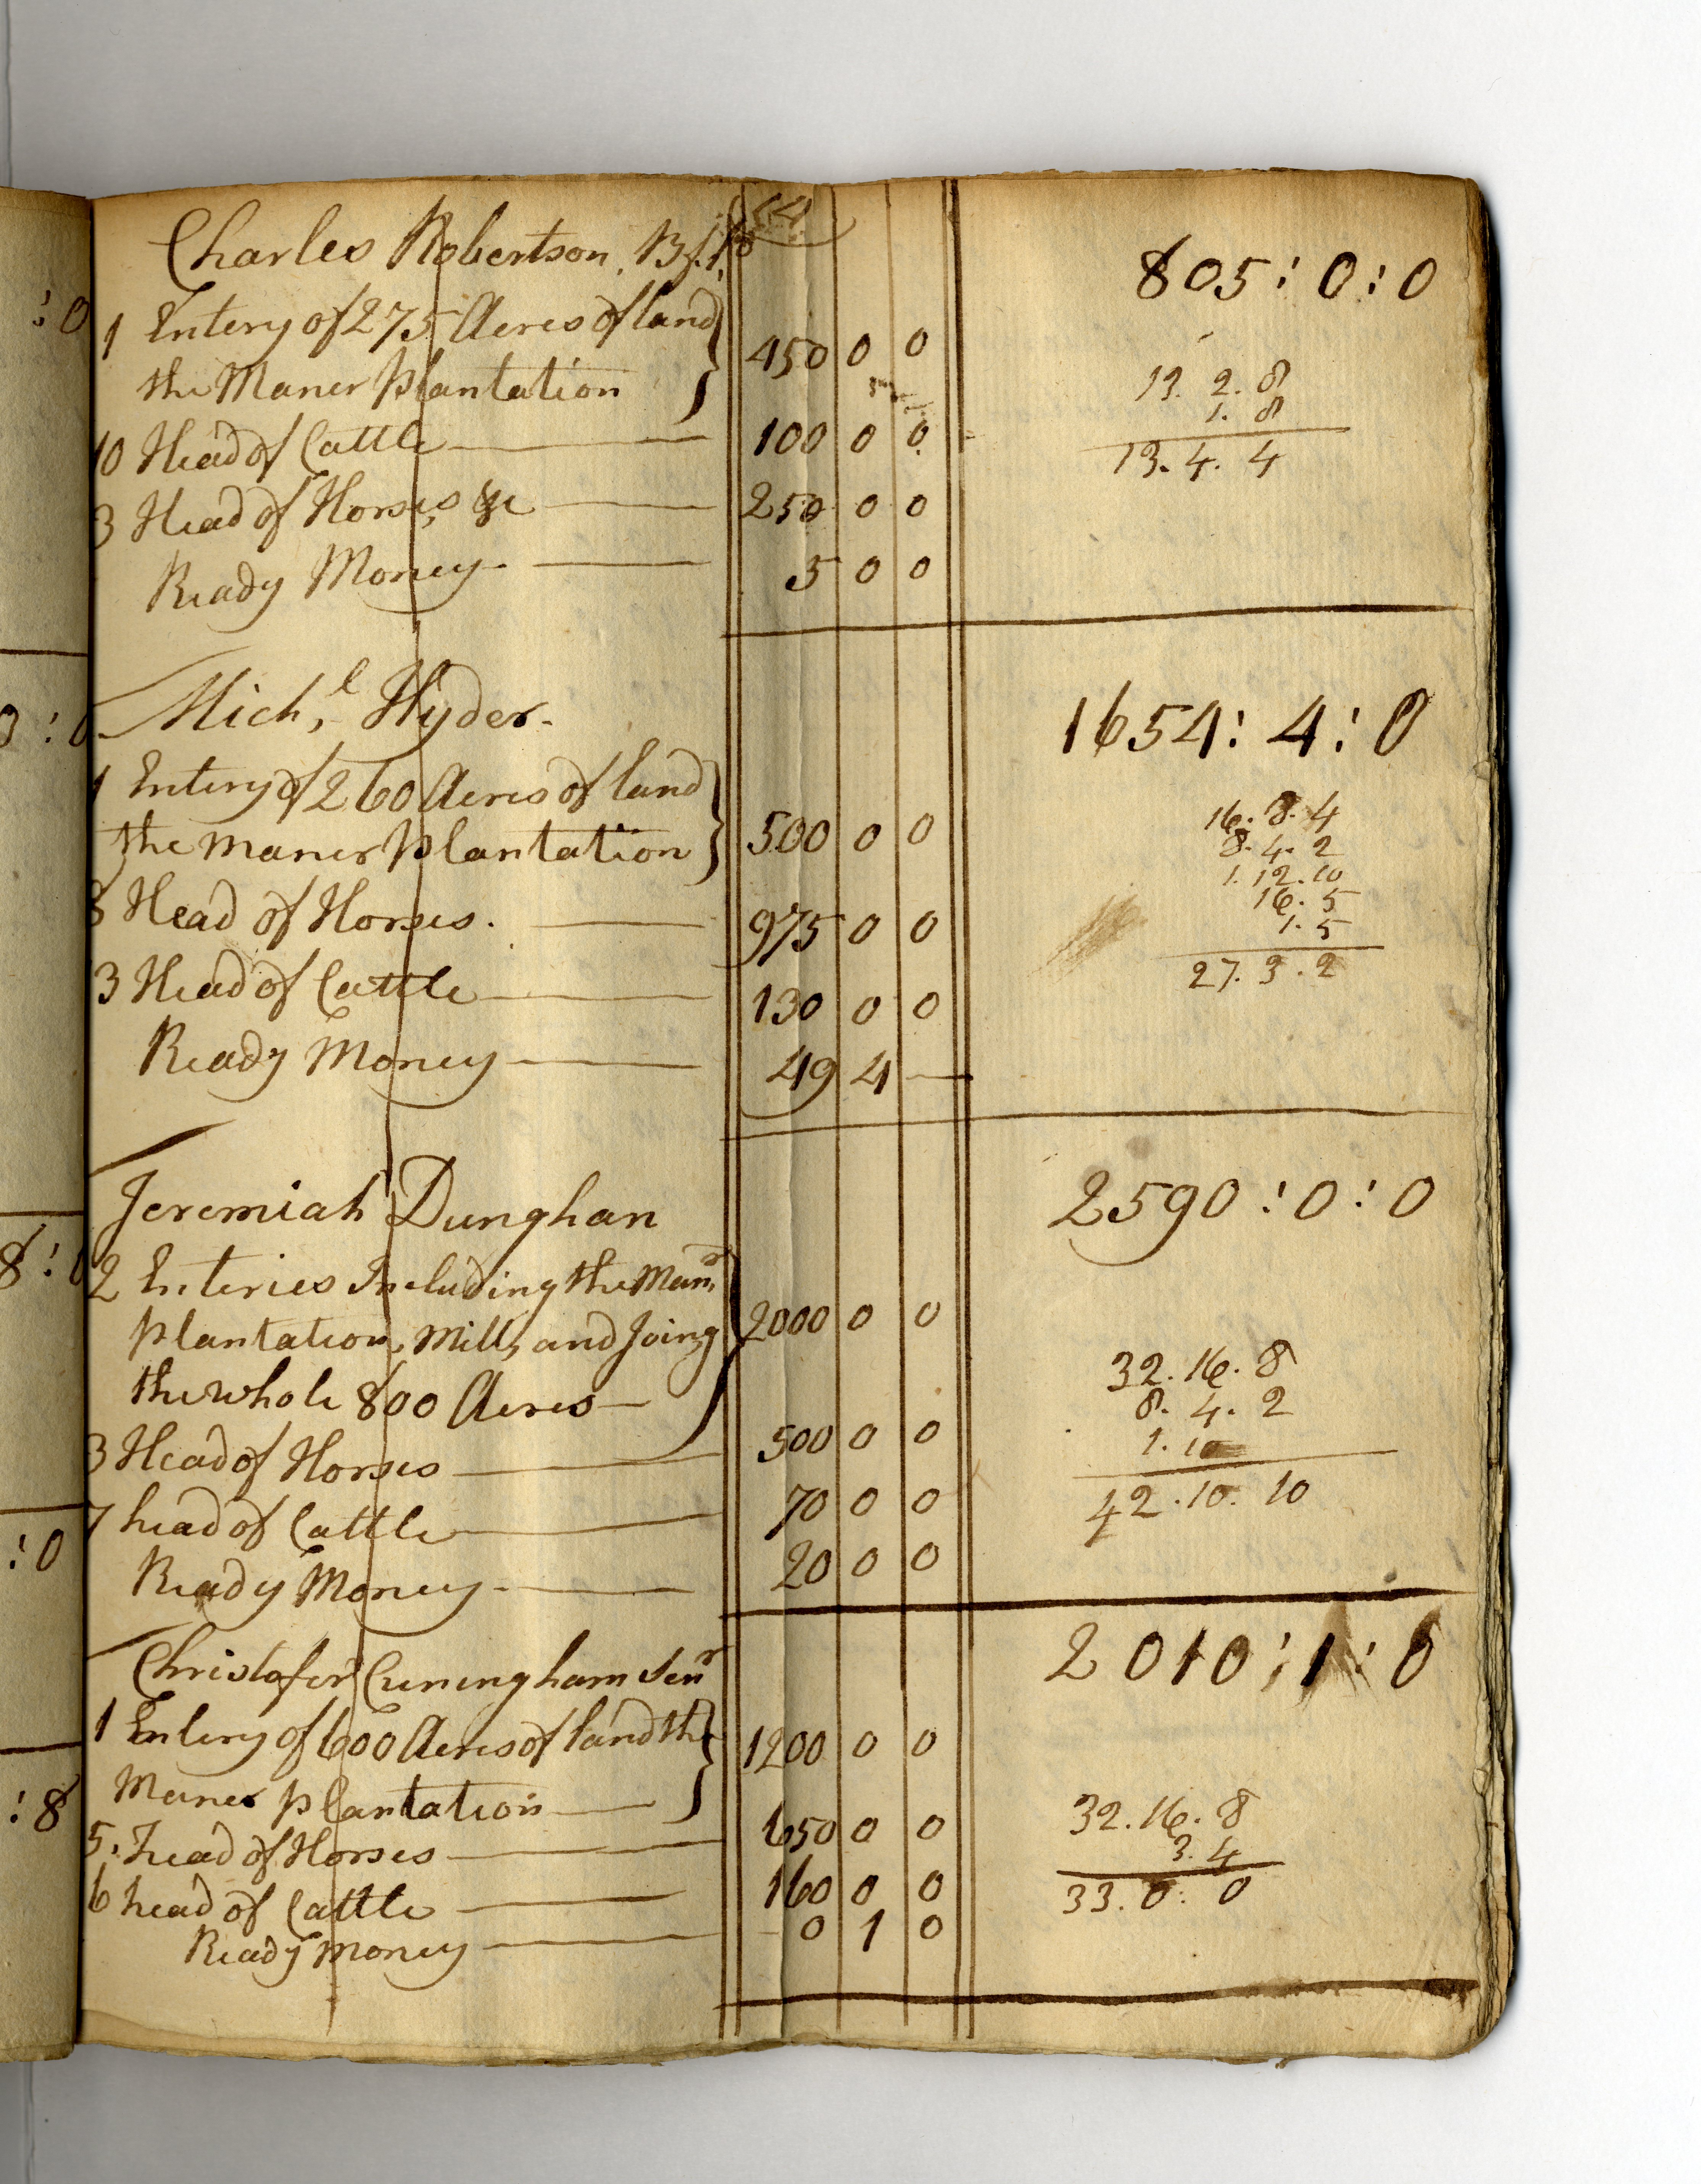 Charles Robertson.
805 : 0 : 0
1 Entery of 275 Acres of land
the Maner Plantation 450 0 0
10 Head of Cattle 100 0 0
3 Head of Horses, &c 250 0 0
Ready Money 5 0 0
13. 2. 8
1. 8
13. 4. 4
Mich,l Hyder.
1654 : 4 : 0
1 Entery of 260 Acres of land
the maner plantation 500 0 0
8 Head of Horses. 975 0 0
3 Head of Cattle 130 0 0
Ready Money 49 4 —
16. 8. 4
8. 4. 2
1. 12. 10
16. 5
1. 5
27. 3. 2
Jeremiah Dunghan
2590 : 0 : 0
2 Enteries Including the Manr
plantation, Mill, and Joing 2000 0 0
the whole 800 Acres —
3 Head of Horses 500 0 0
7 head of Cattle 70 0 0
Ready Money 20 0 0
32. 16. 8
8. 4. 2
1. 10
42. 10. 10
Christofer Cuningham Senr
2010 : 1 : 0
1 Entery of 600 Acres of land the
Maner plantation 1200 0 0
5. head of Horses 650 0 0
6 head of Cattle 160 0 0
Ready money 0 1 0
32. 16. 8
3. 4
33. 0. 0
: 0
: 0
8 : 0
: 0
: 8